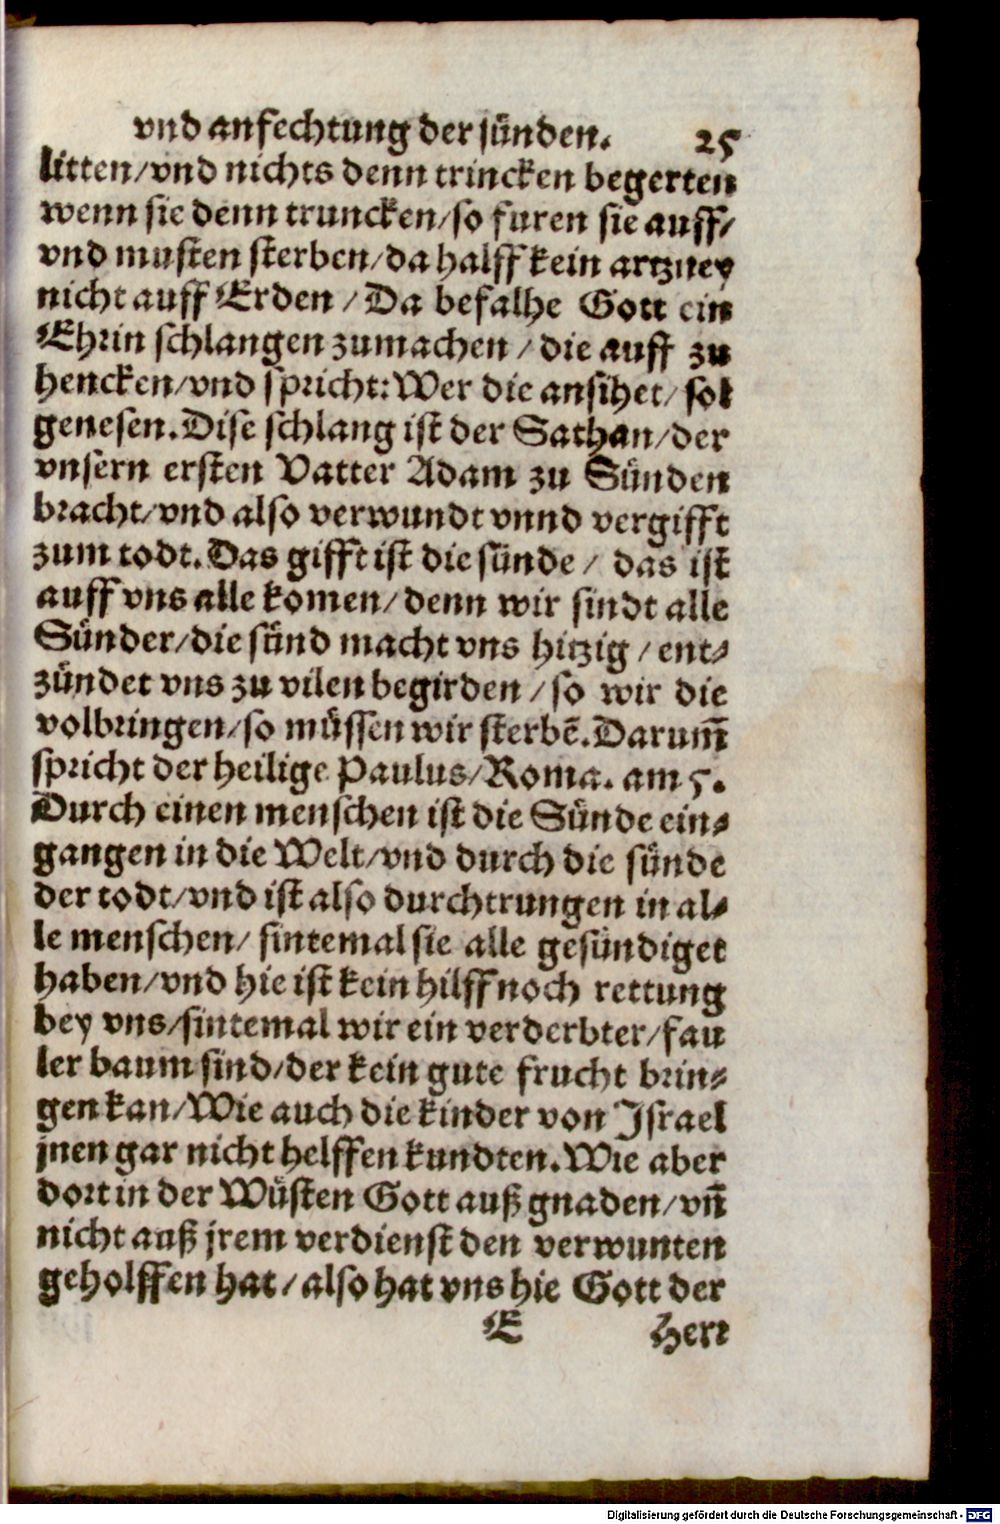 vnd anfechtung der sünden. 25
litten/vnd nichts denn trincken begerten
wenn sie denn truncken/so furen sie auff/
vnd musten sterben/da halff kein artzney
nicht auff Erden / Da befalhe Gott ein
Ehrin schlangen zumachen / die auff zu
hencken/vnd spricht: Wer die ansihet/ sol
genesen. Dise schlang ist der Sathan/der
vnsern ersten Vatter Adam zu Sünden
bracht/vnd also verwundt vnnd vergifft
zum todt. Das gifft ist die sünde / das ist
auff vns alle komen/denn wir sindt alle
Sünder/die sünd macht vns hitzig / ent-
zündet vns zu vilen begirden / so wir die
volbringen/so müssen wir sterbẽ. Darum̃
spricht der heilige Paulus/Roma. am 5.
Durch einen menschen ist die Sünde ein-
gangen in die Welt/vnd durch die sünde
der todt/vnd ist also durchtrungen in al-
le menschen/ sintemal sie alle gesündiget
haben/vnd hie ist kein hilff noch rettung
bey vns/sintemal wir ein verderbter/fau
ler baum sind/der kein gute frucht brin-
gen kan/Wie auch die kinder von Israel
jnen gar nicht helffen kundten. Wie aber
dort in der Wüsten Gott auß gnaden/vñ
nicht auß jrem verdienst den verwunten
geholffen hat/also hat vns hie Gott der
E Herr
Digitalisierung gefördert durch die Deutsche Forschungsgemeinschaft - DFG